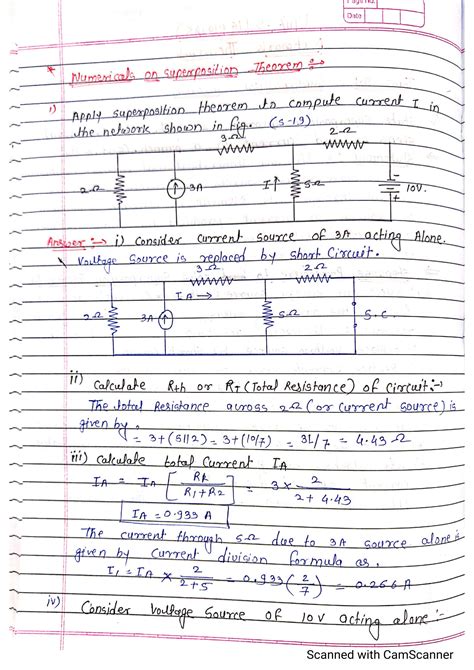 Page No.
Date
* Numericals on superposition Theorem :→
i) Apply superposition theorem to compute current I in
the network shown in fig. (S-19)
3Ω
2Ω
2Ω
3A
I↑
5Ω
-
10V.
+
Answer :→ i) Consider current source of 3A acting Alone.
Voltage Source is replaced by short Circuit.
3Ω
2Ω
I A →
2Ω
3A
5Ω
S.C.
ii) Calculate Rth or RT (Total Resistance) of Circuit:-
The total Resistance across 2Ω (or current source) is
given by,
= 3+(5||2) = 3+(10/7) = 31/7 = 4.43 Ω
iii) Calculate total Current IA
IA = IA [ / R1+R2 ] = 3 × 2 / 2 + 4.43
IA = 0.933 A
The current through 5Ω due to 3A source alone is
given by current division formula as.
I1 = IA × 2 / 2+5 = 0.933 (2/7) = 0.266A
iv) Consider Voltage Source of 10V acting alone :-
Scanned with CamScanner